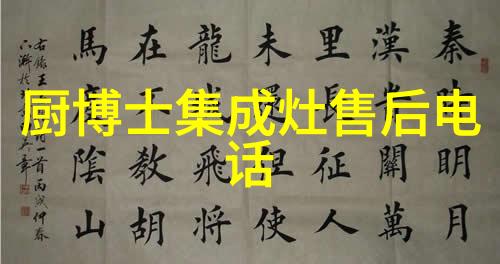 厨博士集成灶售后电
话
秦時明月
漢時關萬
里長征人
未還但使
龍城飛將
在不教胡
馬度陰山
右錄王 詩一首丙戌仲春